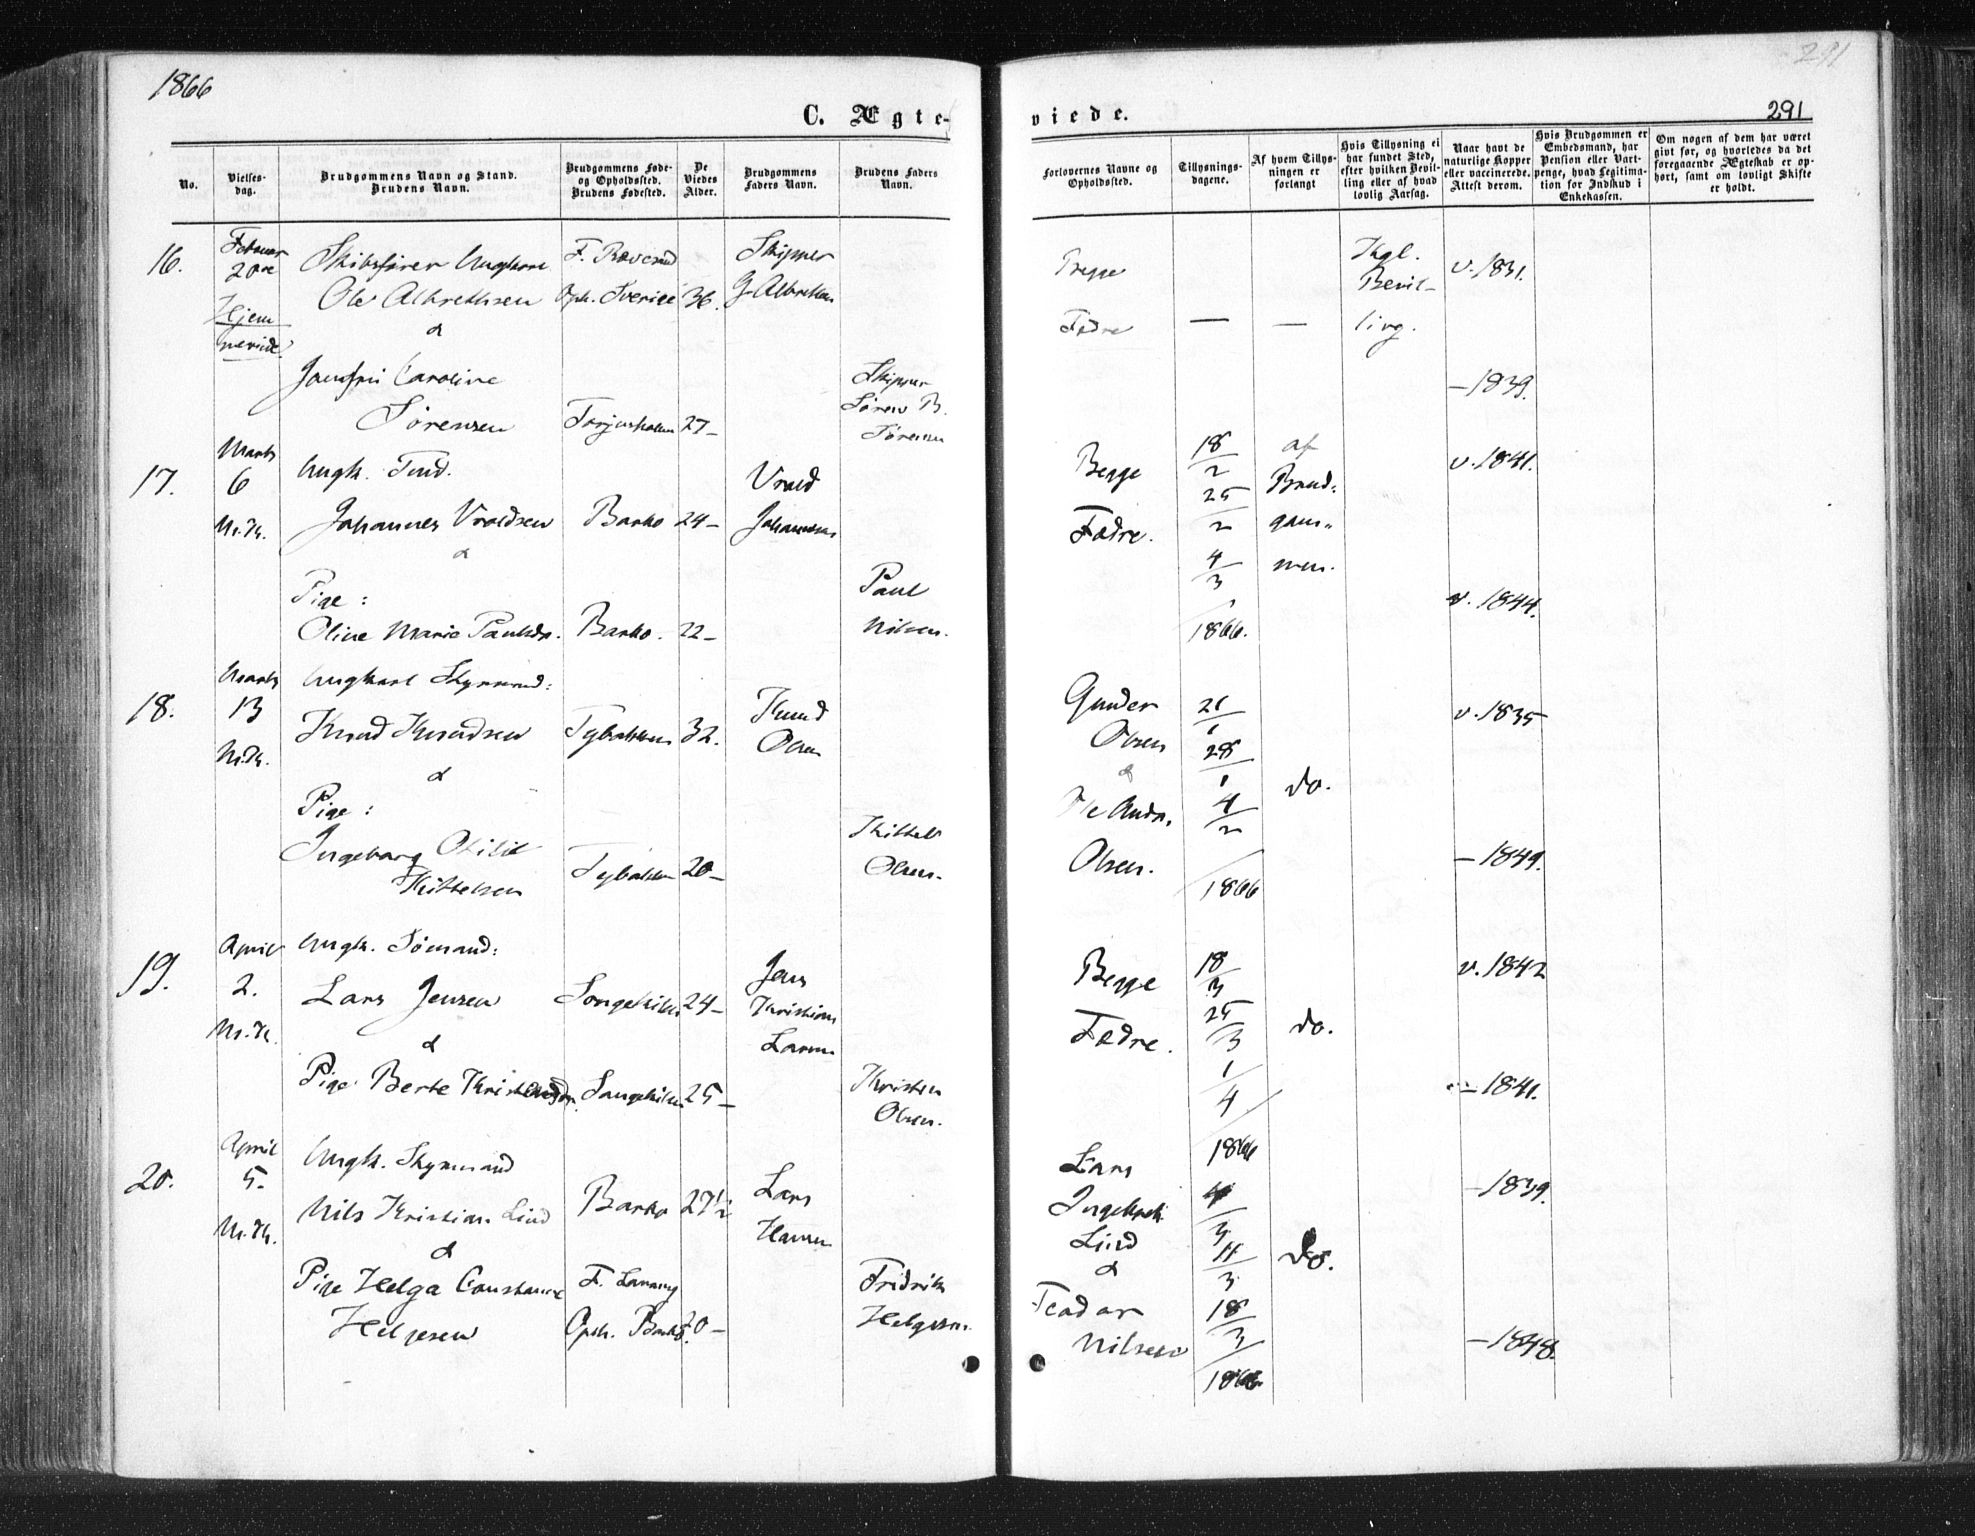 1866
291
291
C. Ægte-
viede.
No.
Vielses-
dag.
Brudgommens Navn og Stand.
Brudens Navn.
Brudgommens Føde-
og Opholdssted.
Brudens Fødested.
De
Viedes
Alder.
Brudgommens
Faders Navn.
Brudens Faders
Navn.
Forlovernes Navne og
Opholdssted.
Tillysnings-
dagene.
Af hvem Tillys-
ningen er
forlangt
Hvis Tillysning ei
har fundet Sted,
efter hvilken Bevil-
ling eller af hvad
lovlig Aarsag.
Naar havt de
naturlige Kopper
eller vaccinerede.
Attest derom.
Hvis Brudgommen er
Embedsmand, har
Pension eller Vart-
penge, hvad Legitima-
tion for Indskud i
Enkekassen.
Om nogen af dem har været
givt før, og hvorledes da det
foregaaende Ægteskab er op-
hørt, samt om lovligt Skifte
er holdt.
16.
Februar
20de
Hjem
meviede
Skibsfører Ungkarl
Ole Albrethsen
&
Jomfru Caroline
Sørensen
Oph. Sverige
36.
27-
Skipper
Skipper
Søren B.
Sørensen
Begge
Fædre
— —
Kgl.
Bevil-
ling.
v. 1831.
— 1839.
17.
Marts
6
M.K.
Ungk. Tind.
Johannes Vraldsen
&
Pige:
Oline Marie Paulsdr.
Barbo
24-
Barbo.
22-
Vrald
Johannesen
Paul
Nilsen.
Begge
Fædre.
18/2
25/2
4/3
1866.
af
Brud-
gom-
men.
v. 1841.
v. 1844.
18.
Marts
13
M.K.
Ungkarl Styrmand:
Knud Knudsen
&
Pige:
Ingeborg Otilie
Kittelsen
Tybakken
32.
Tybakken
20-
Knud
Olsen
Kittel
Olsen.
Gunder
Olsen
&
Ole Andr.
Olsen.
21/1
28/1
4/2
1866
do.
v. 1835
— 1849.
19.
April
2.
M.K.
Ungk. Sømand:
Lars Jensen
&
Pige Berte
Songekilen
24-
Songekilen
25-
Jens
Kristian
Larsen
Kristen
Olsen.
Begge
Fædre.
18/3
25/3
1/4
1866
do.
v. 1842
— 1841.
20.
April
5.
M.K.
Ungk. Styrmand
Nils Kristian Lind
&
Pige Helga Constance
Helgesen
Barbo
27½
Oph. Barbo.
20-
Lars
Hansen
Fridrik
Helgesen.
Lars
Ingebret.
Lind
&
Nilsen
4/3
11/3
18/3
1866.
do.
— 1839.
— 1848.